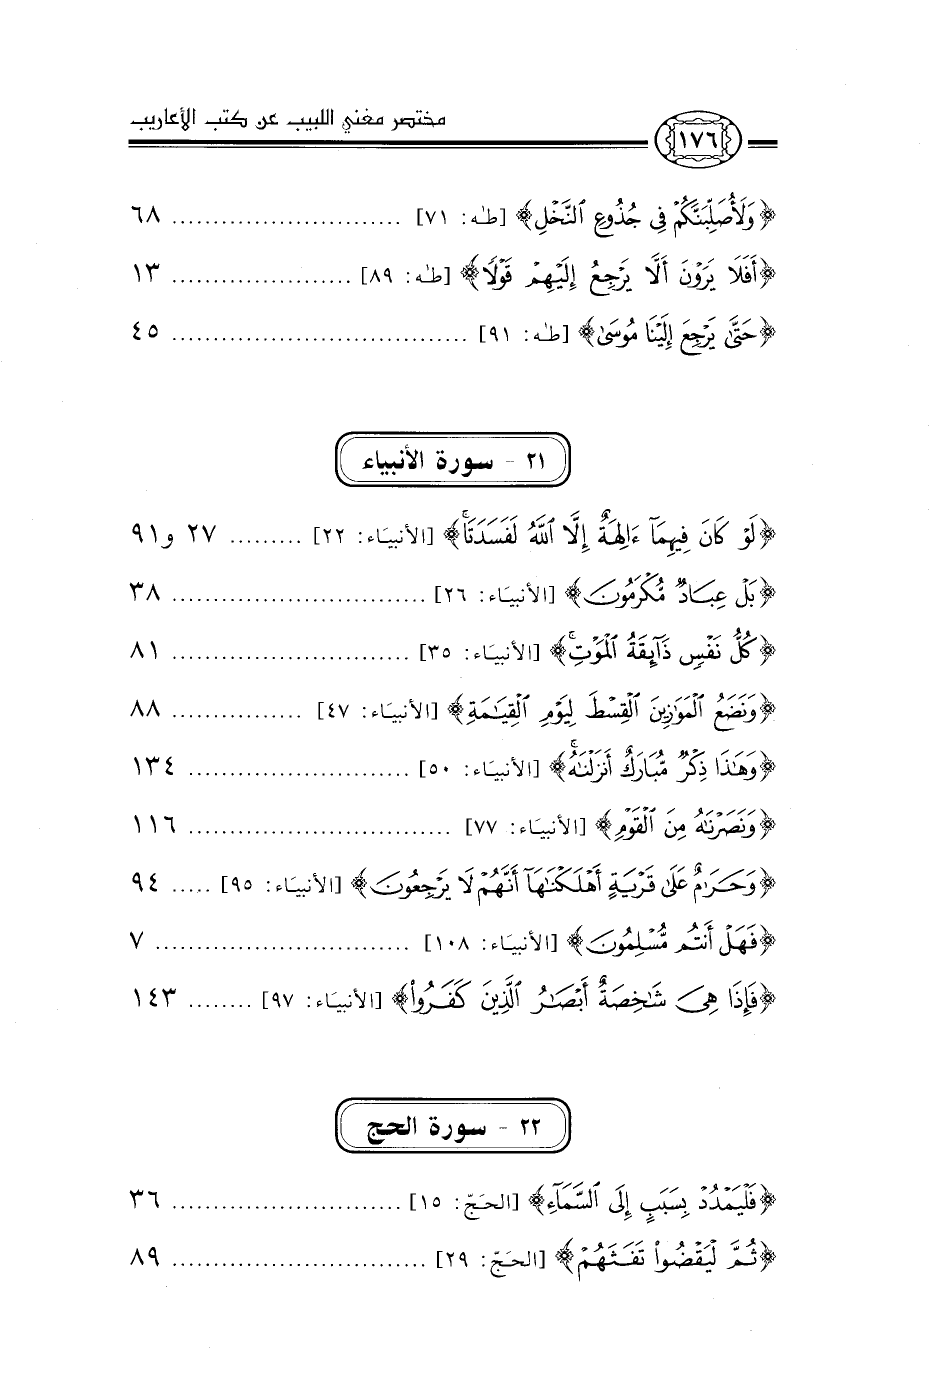 ١٧٦ مختصر مغني اللبيب عن كتب الأعاريب
﴿وَلَأُصَلِّبَنَّكُمْ فِي جُذُوعِ ٱلنَّخْلِ﴾ [طه: ٧١] ............................ ٦٨
﴿أَفَلَا يَرَوْنَ أَلَّا يَرْجِعُ إِلَيْهِمْ قَوْلًا﴾ [طه: ٨٩] ...................... ١٣
﴿حَتَّىٰ يَرْجِعَ إِلَيْنَا مُوسَىٰ﴾ [طه: ٩١] .................................... ٤٥
٢١ - سورة الأنبياء
﴿لَوْ كَانَ فِيهِمَآ ءَالِهَةٌ إِلَّا ٱللَّهُ لَفَسَدَتَا ۚ﴾ [الأنبيَاء: ٢٢] ......... ٢٧ و٩١
﴿بَلْ عِبَادٌ مُّكْرَمُونَ﴾ [الأنبيَاء: ٢٦] ............................... ٣٨
﴿كُلُّ نَفْسٍ ذَآئِقَةُ ٱلْمَوْتِ ۚ﴾ [الأنبيَاء: ٣٥] ............................. ٨١
﴿وَنَضَعُ ٱلْمَوَٰزِينَ ٱلْقِسْطَ لِيَوْمِ ٱلْقِيَٰمَةِ﴾ [الأنبيَاء: ٤٧] ................ ٨٨
﴿وَهَٰذَا ذِكْرٌ مُّبَارَكٌ أَنزَلْنَٰهُ ۚ﴾ [الأنبيَاء: ٥٠] ........................... ١٣٤
﴿وَنَصَرْنَٰهُ مِنَ ٱلْقَوْمِ﴾ [الأنبيَاء: ٧٧] ................................ ١١٦
﴿وَحَرَٰمٌ عَلَىٰ قَرْيَةٍ أَهْلَكْنَٰهَآ أَنَّهُمْ لَا يَرْجِعُونَ﴾ [الأنبيَاء: ٩٥] ..... ٩٤
﴿فَهَلْ أَنتُم مُّسْلِمُونَ﴾ [الأنبيَاء: ١٠٨] ............................... ٧
﴿فَإِذَا هِيَ شَٰخِصَةٌ أَبْصَٰرُ ٱلَّذِينَ كَفَرُوا۟﴾ [الأنبيَاء: ٩٧] ........ ١٤٣
٢٢ - سورة الحج
﴿فَلْيَمْدُدْ بِسَبَبٍ إِلَى ٱلسَّمَآءِ﴾ [الحَجّ: ١٥] ............................ ٣٦
﴿ثُمَّ لْيَقْضُوا۟ تَفَثَهُمْ﴾ [الحَجّ: ٢٩] ............................... ٨٩